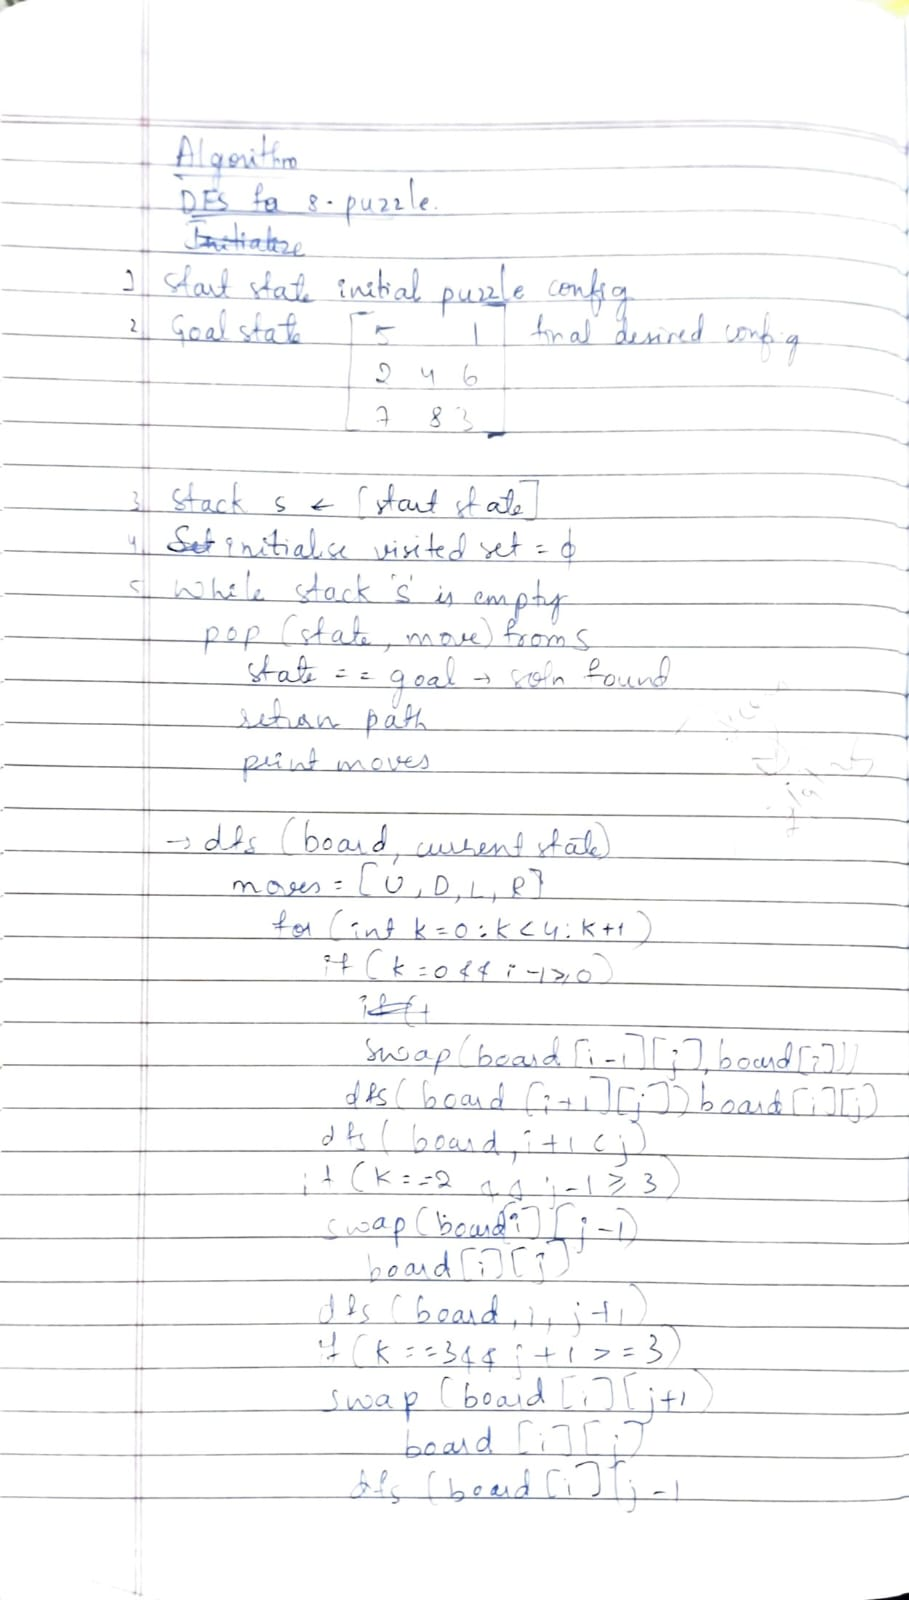 Algorithm
DFS for 8-puzzle.
Initialize
1 Start state initial puzzle config
2 Goal state [5 1] final desired config
2 4 6
7 8 3
3 Stack s ← [start state]
4 Set initialise visited set = φ
5 While stack 's' is empty
pop (state, move) from s
state == goal → soln found
return path
print moves
→ dfs (board, current state)
moves = [U, D, L, R]
for (int k=0; k<4; k+1)
if (k=0 && i-1≥0)
swap (board [i-1][j], board[i]))
dfs (board [i+1][j]) board[i][j]
dfs (board, i+1 < j)
if (k==2 && j-1 ≥ 3)
swap (board[i][j-1)
board [i][j]
dfs (board, i, j+1)
if (k==3 && j+1 >=3)
swap (board [i][j+1)
board [i][j]
dfs (board [i][j-1